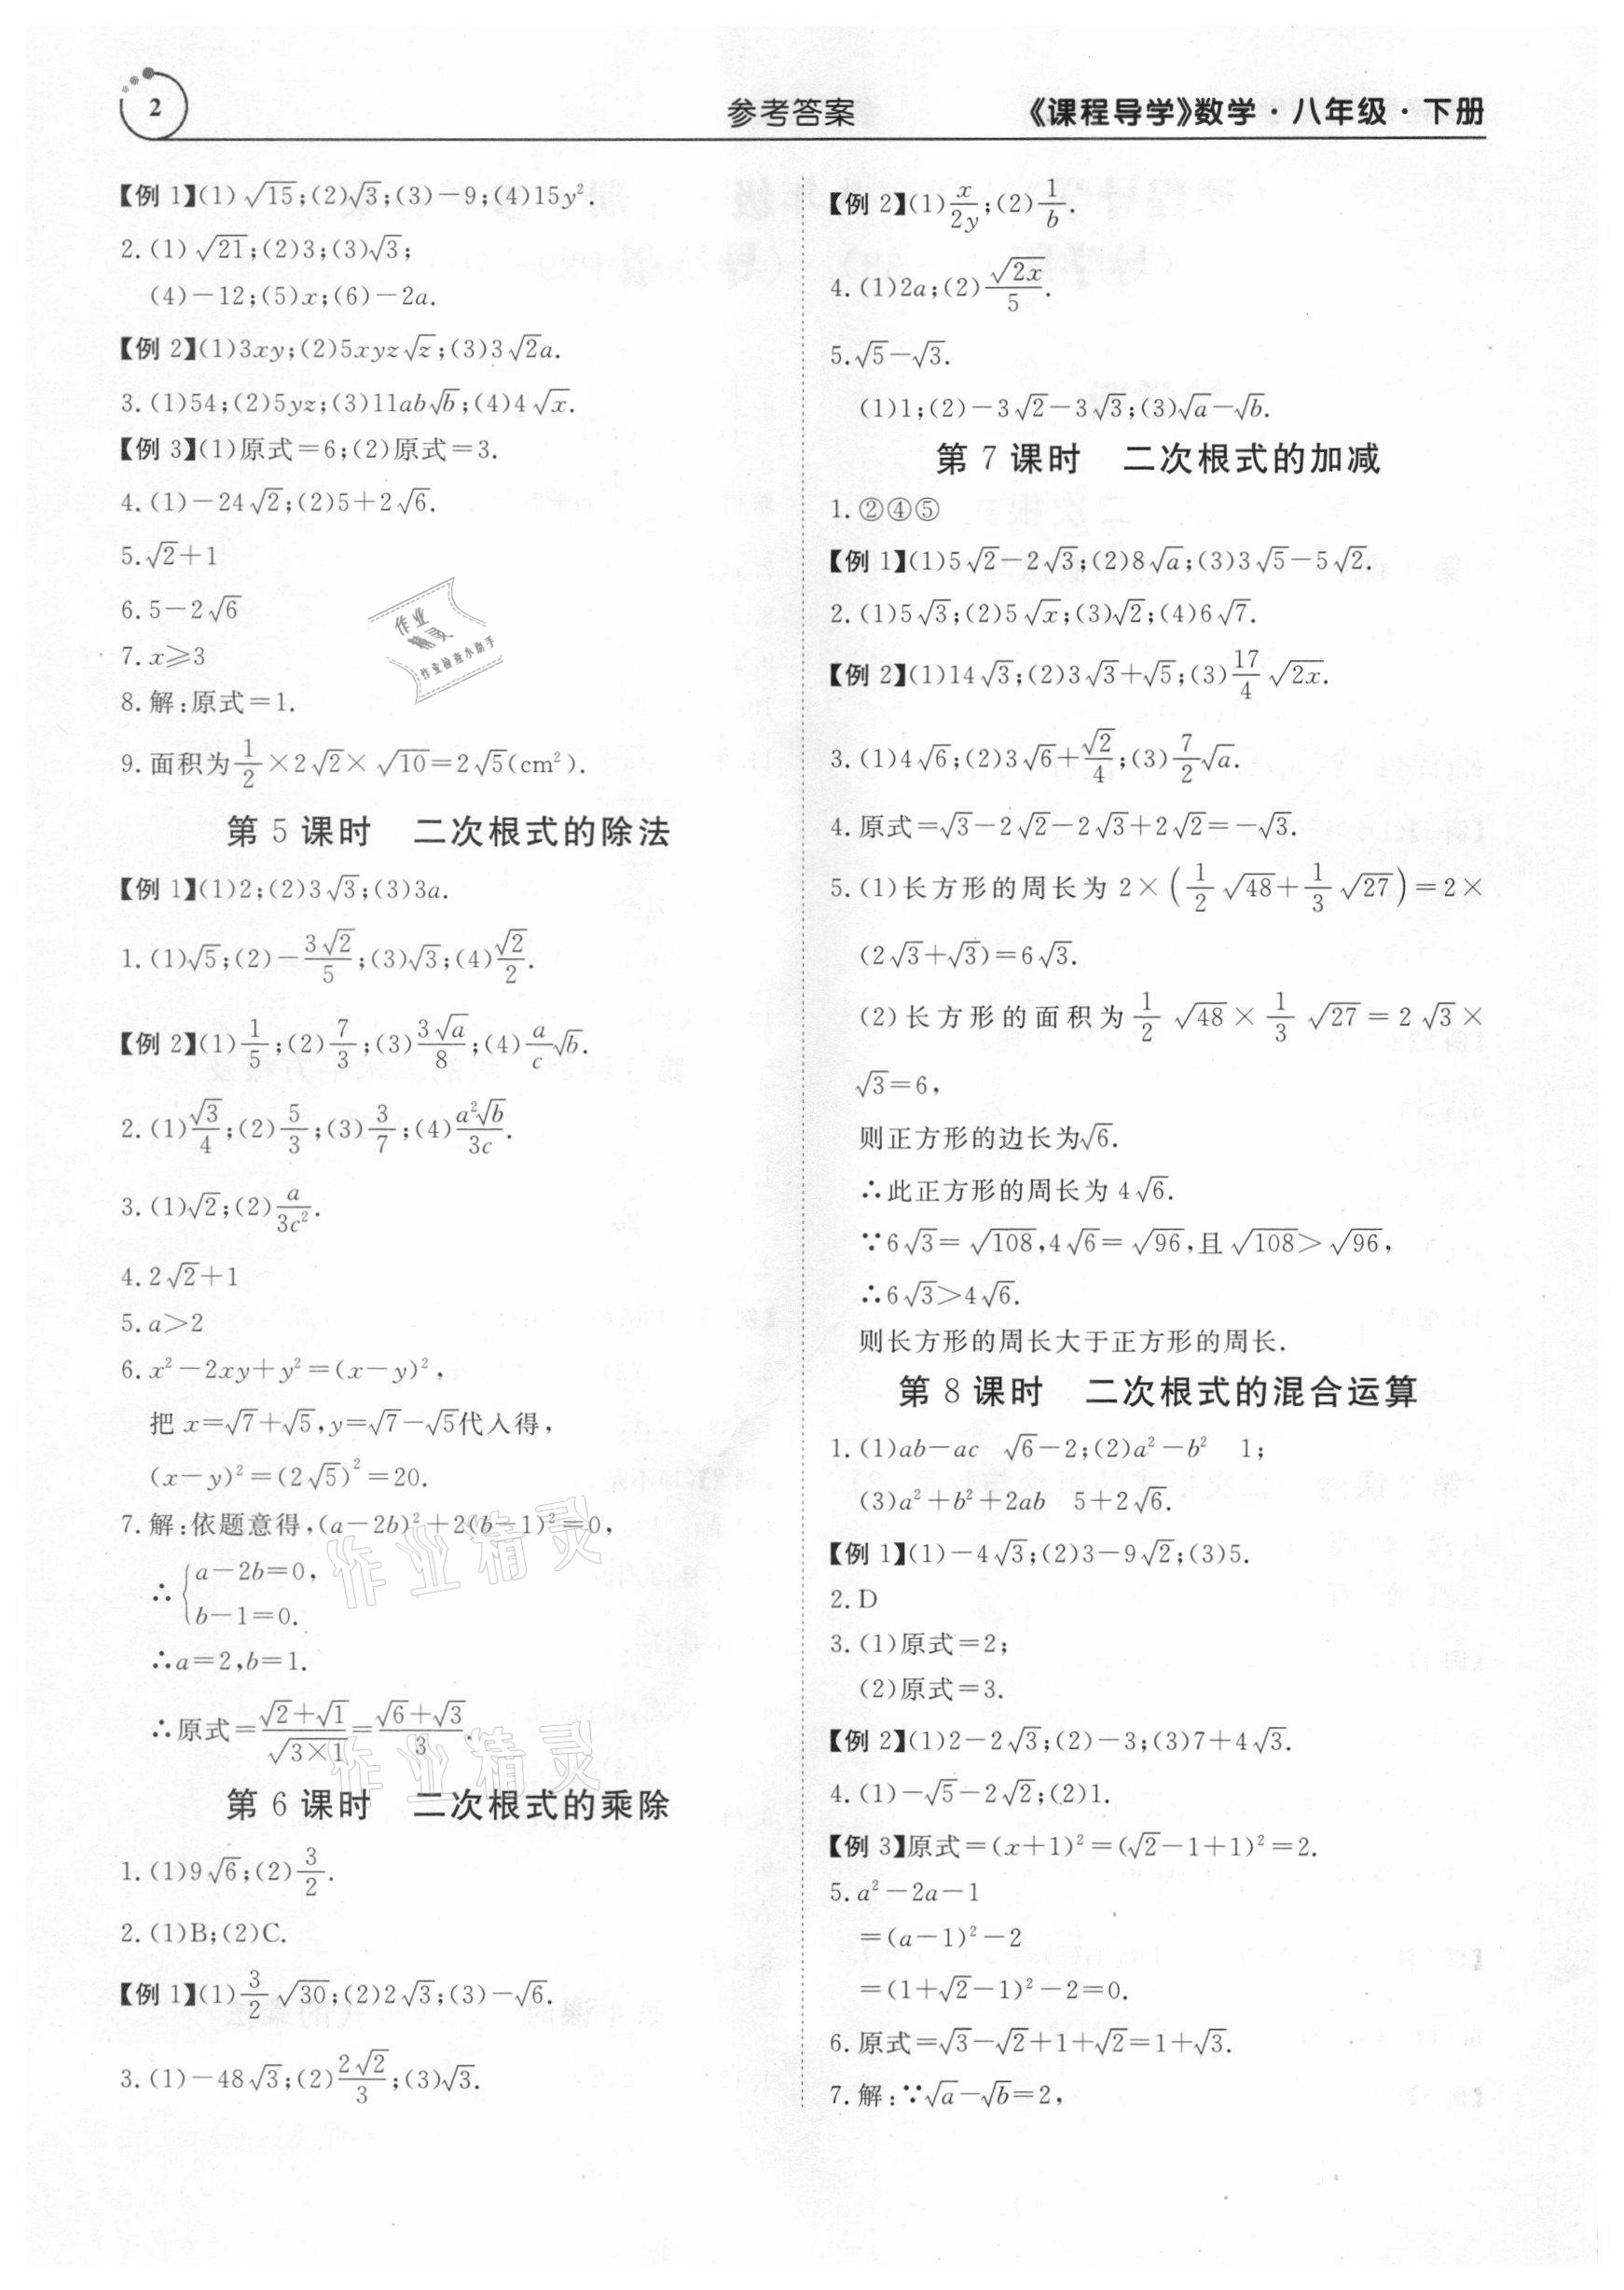 2
参考答案
《课程导学》数学·八年级·下册
【例 1】(1)√15;(2)√3;(3)－9;(4)15y².
2.(1)√21;(2)3;(3)√3;
(4)－12;(5)x;(6)－2a.
【例 2】(1)3xy;(2)5xyz√z;(3)3√2a.
3.(1)54;(2)5yz;(3)11ab√b;(4)4√x.
【例 3】(1)原式＝6;(2)原式＝3.
4.(1)－24√2;(2)5＋2√6.
5.√2＋1
6.5－2√6
7.x⩾3
8.解:原式＝1.
9.面积为1/2×2√2×√10＝2√5(cm²).
第 5 课时　二次根式的除法
【例 1】(1)2;(2)3√3;(3)3a.
1.(1)√5;(2)－3√2/5;(3)√3;(4)√2/2.
【例 2】(1)1/5;(2)7/3;(3)3√a/8;(4)a/c√b.
2.(1)√3/4;(2)5/3;(3)3/7;(4)a²√b/3c.
3.(1)√2;(2)a/3c².
4.2√2＋1
5.a＞2
6.x²－2xy＋y²＝(x－y)²,
把 x＝√7＋√5,y＝√7－√5代入得,
(x－y)²＝(2√5)²＝20.
7.解:依题意得,(a－2b)²＋2(b－1)²＝0,
∴{a－2b＝0,
b－1＝0.
∴a＝2,b＝1.
∴原式＝(√2＋√1)/√(3×1)＝(√6＋√3)/3.
第 6 课时　二次根式的乘除
1.(1)9√6;(2)3/2.
2.(1)B;(2)C.
【例 1】(1)3/2√30;(2)2√3;(3)－√6.
3.(1)－48√3;(2)2√2/3;(3)√3.
【例 2】(1)x/2y;(2)1/b.
4.(1)2a;(2)√2x/5.
5.√5－√3.
(1)1;(2)－3√2－3√3;(3)√a－√b.
第 7 课时　二次根式的加减
1.②④⑤
【例 1】(1)5√2－2√3;(2)8√a;(3)3√5－5√2.
2.(1)5√3;(2)5√x;(3)√2;(4)6√7.
【例 2】(1)14√3;(2)3√3＋√5;(3)17/4√2x.
3.(1)4√6;(2)3√6＋√2/4;(3)7/2√a.
4.原式＝√3－2√2－2√3＋2√2＝－√3.
5.(1)长方形的周长为 2×(1/2√48＋1/3√27)＝2×
(2√3＋√3)＝6√3.
(2)长方形的面积为1/2√48×1/3√27＝2√3×
√3＝6,
则正方形的边长为√6.
∴此正方形的周长为 4√6.
∵6√3＝√108,4√6＝√96,且√108＞√96,
∴6√3＞4√6.
则长方形的周长大于正方形的周长.
第 8 课时　二次根式的混合运算
1.(1)ab－ac　√6－2;(2)a²－b²　1;
(3)a²＋b²＋2ab　5＋2√6.
【例 1】(1)－4√3;(2)3－9√2;(3)5.
2.D
3.(1)原式＝2;
(2)原式＝3.
【例 2】(1)2－2√3;(2)－3;(3)7＋4√3.
4.(1)－√5－2√2;(2)1.
【例 3】原式＝(x＋1)²＝(√2－1＋1)²＝2.
5.a²－2a－1
＝(a－1)²－2
＝(1＋√2－1)²－2＝0.
6.原式＝√3－√2＋1＋√2＝1＋√3.
7.解:∵√a－√b＝2,
作业
精灵
作业检查小助手
作业精灵
作业精灵